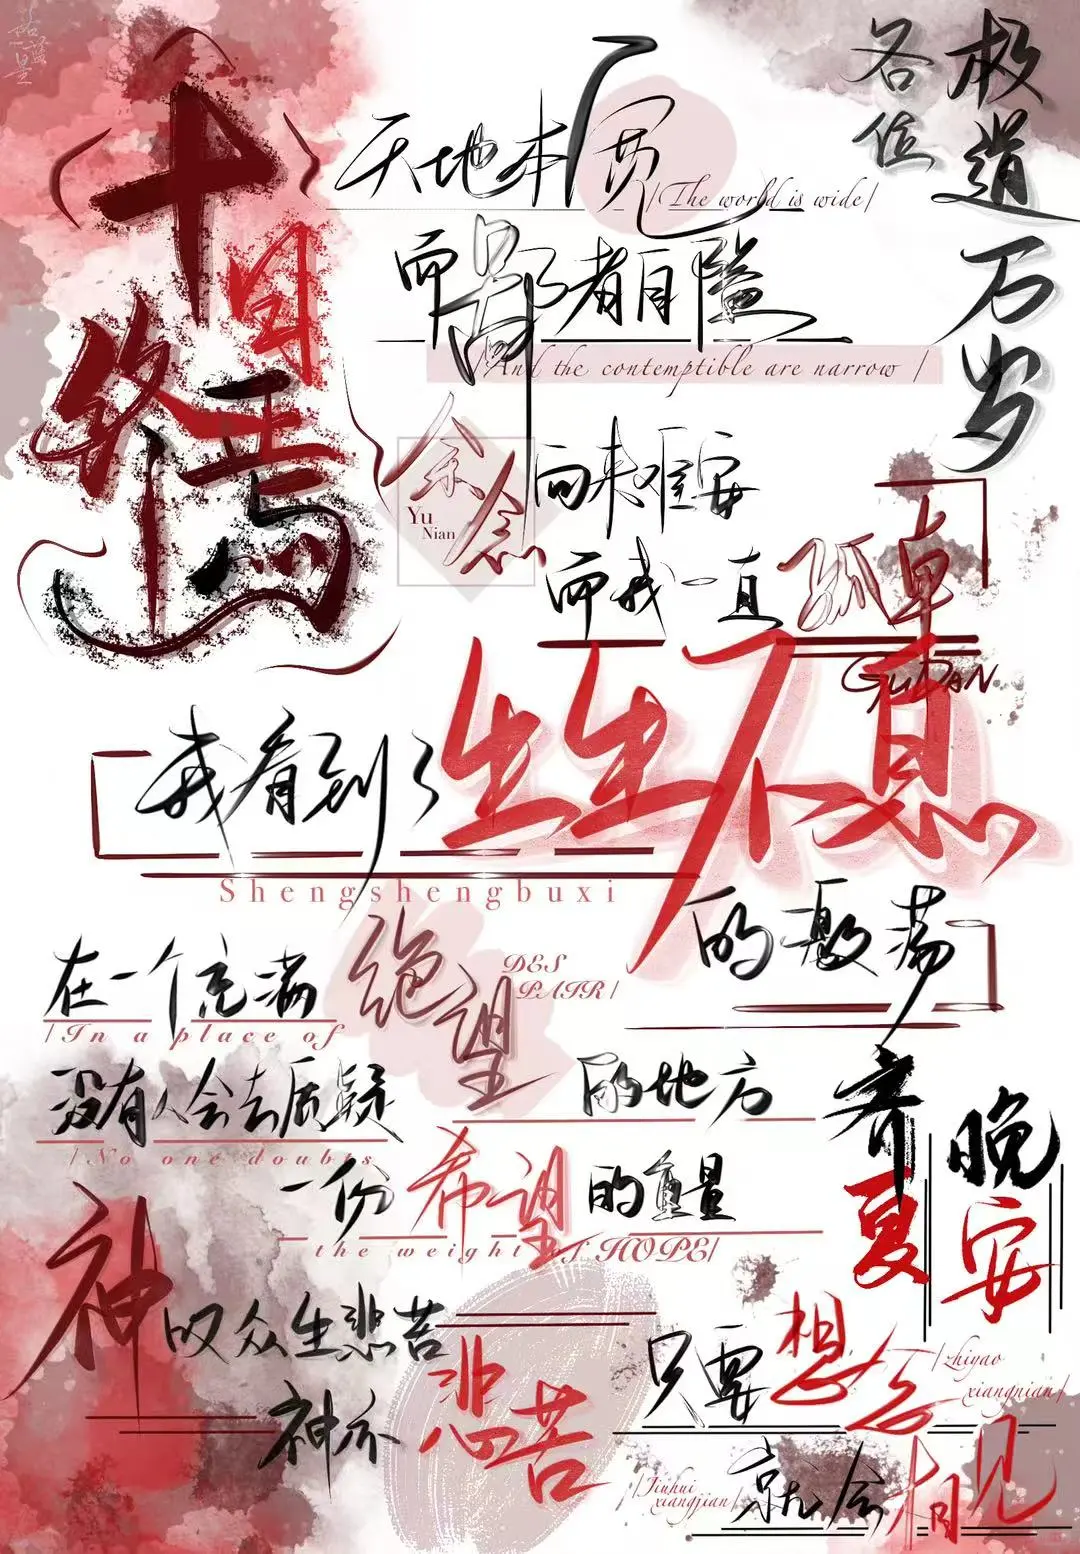 十日
终焉
天地本宽
/The world is wide/
而鄙者自隘
/And the contemptible are narrow/
余念
Yu
Nian
向来难安
而我一直孤单
GUDAN
我看到了生生不息
Shengshengbuxi
的激荡
在一个充满绝望
DES
PAIR/
/In a place of
的地方
没有人会去质疑
/No one doubts
一份希望的重量
the weight of HOPE/
神叹众生悲苦
神亦悲苦
各位
极道万岁
齐夏
晚安
只要想念
/zhiyao
xiangnian/
就会相见
/Jiuhui
xiangjian/